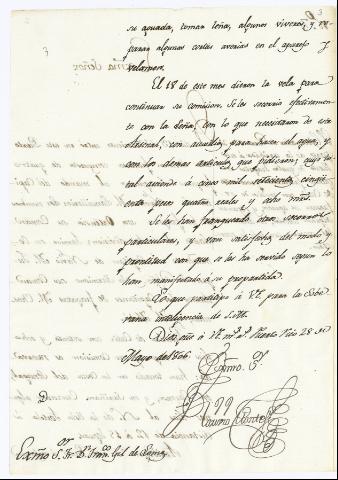 su aguada, tomar leña, algunos viveres, y re-
paran algunas cortas averias en el aparejo y
velamen.
El 18 de este mes dieron la vela para
continuar su comision. Se les socorrio efectivamen-
te con la leña, con lo que necesitaron de este
Arsenal, con auxilios para hacer el agua, y
con los demas articulos que pidieron, cuyo to-
tal asciende á cinco mil setecientos cinqü-
enta pesos quatro reales y ocho mrs.
Se les han franqueado otros socorros
particulares, y van satisfechos del modo y
prontitud con que se les ha servido segun lo
han manifestado á su partida.
Lo que participo á VE. para la Sobe-
rana inteligencia de S.M.
Dios gue á VE. ms. as. Puerto Rico 28 de
Mayo de 1806.
Exmo. Sor.
Exmo Sor. Fr. Dn. Franco. Gil de Lemus